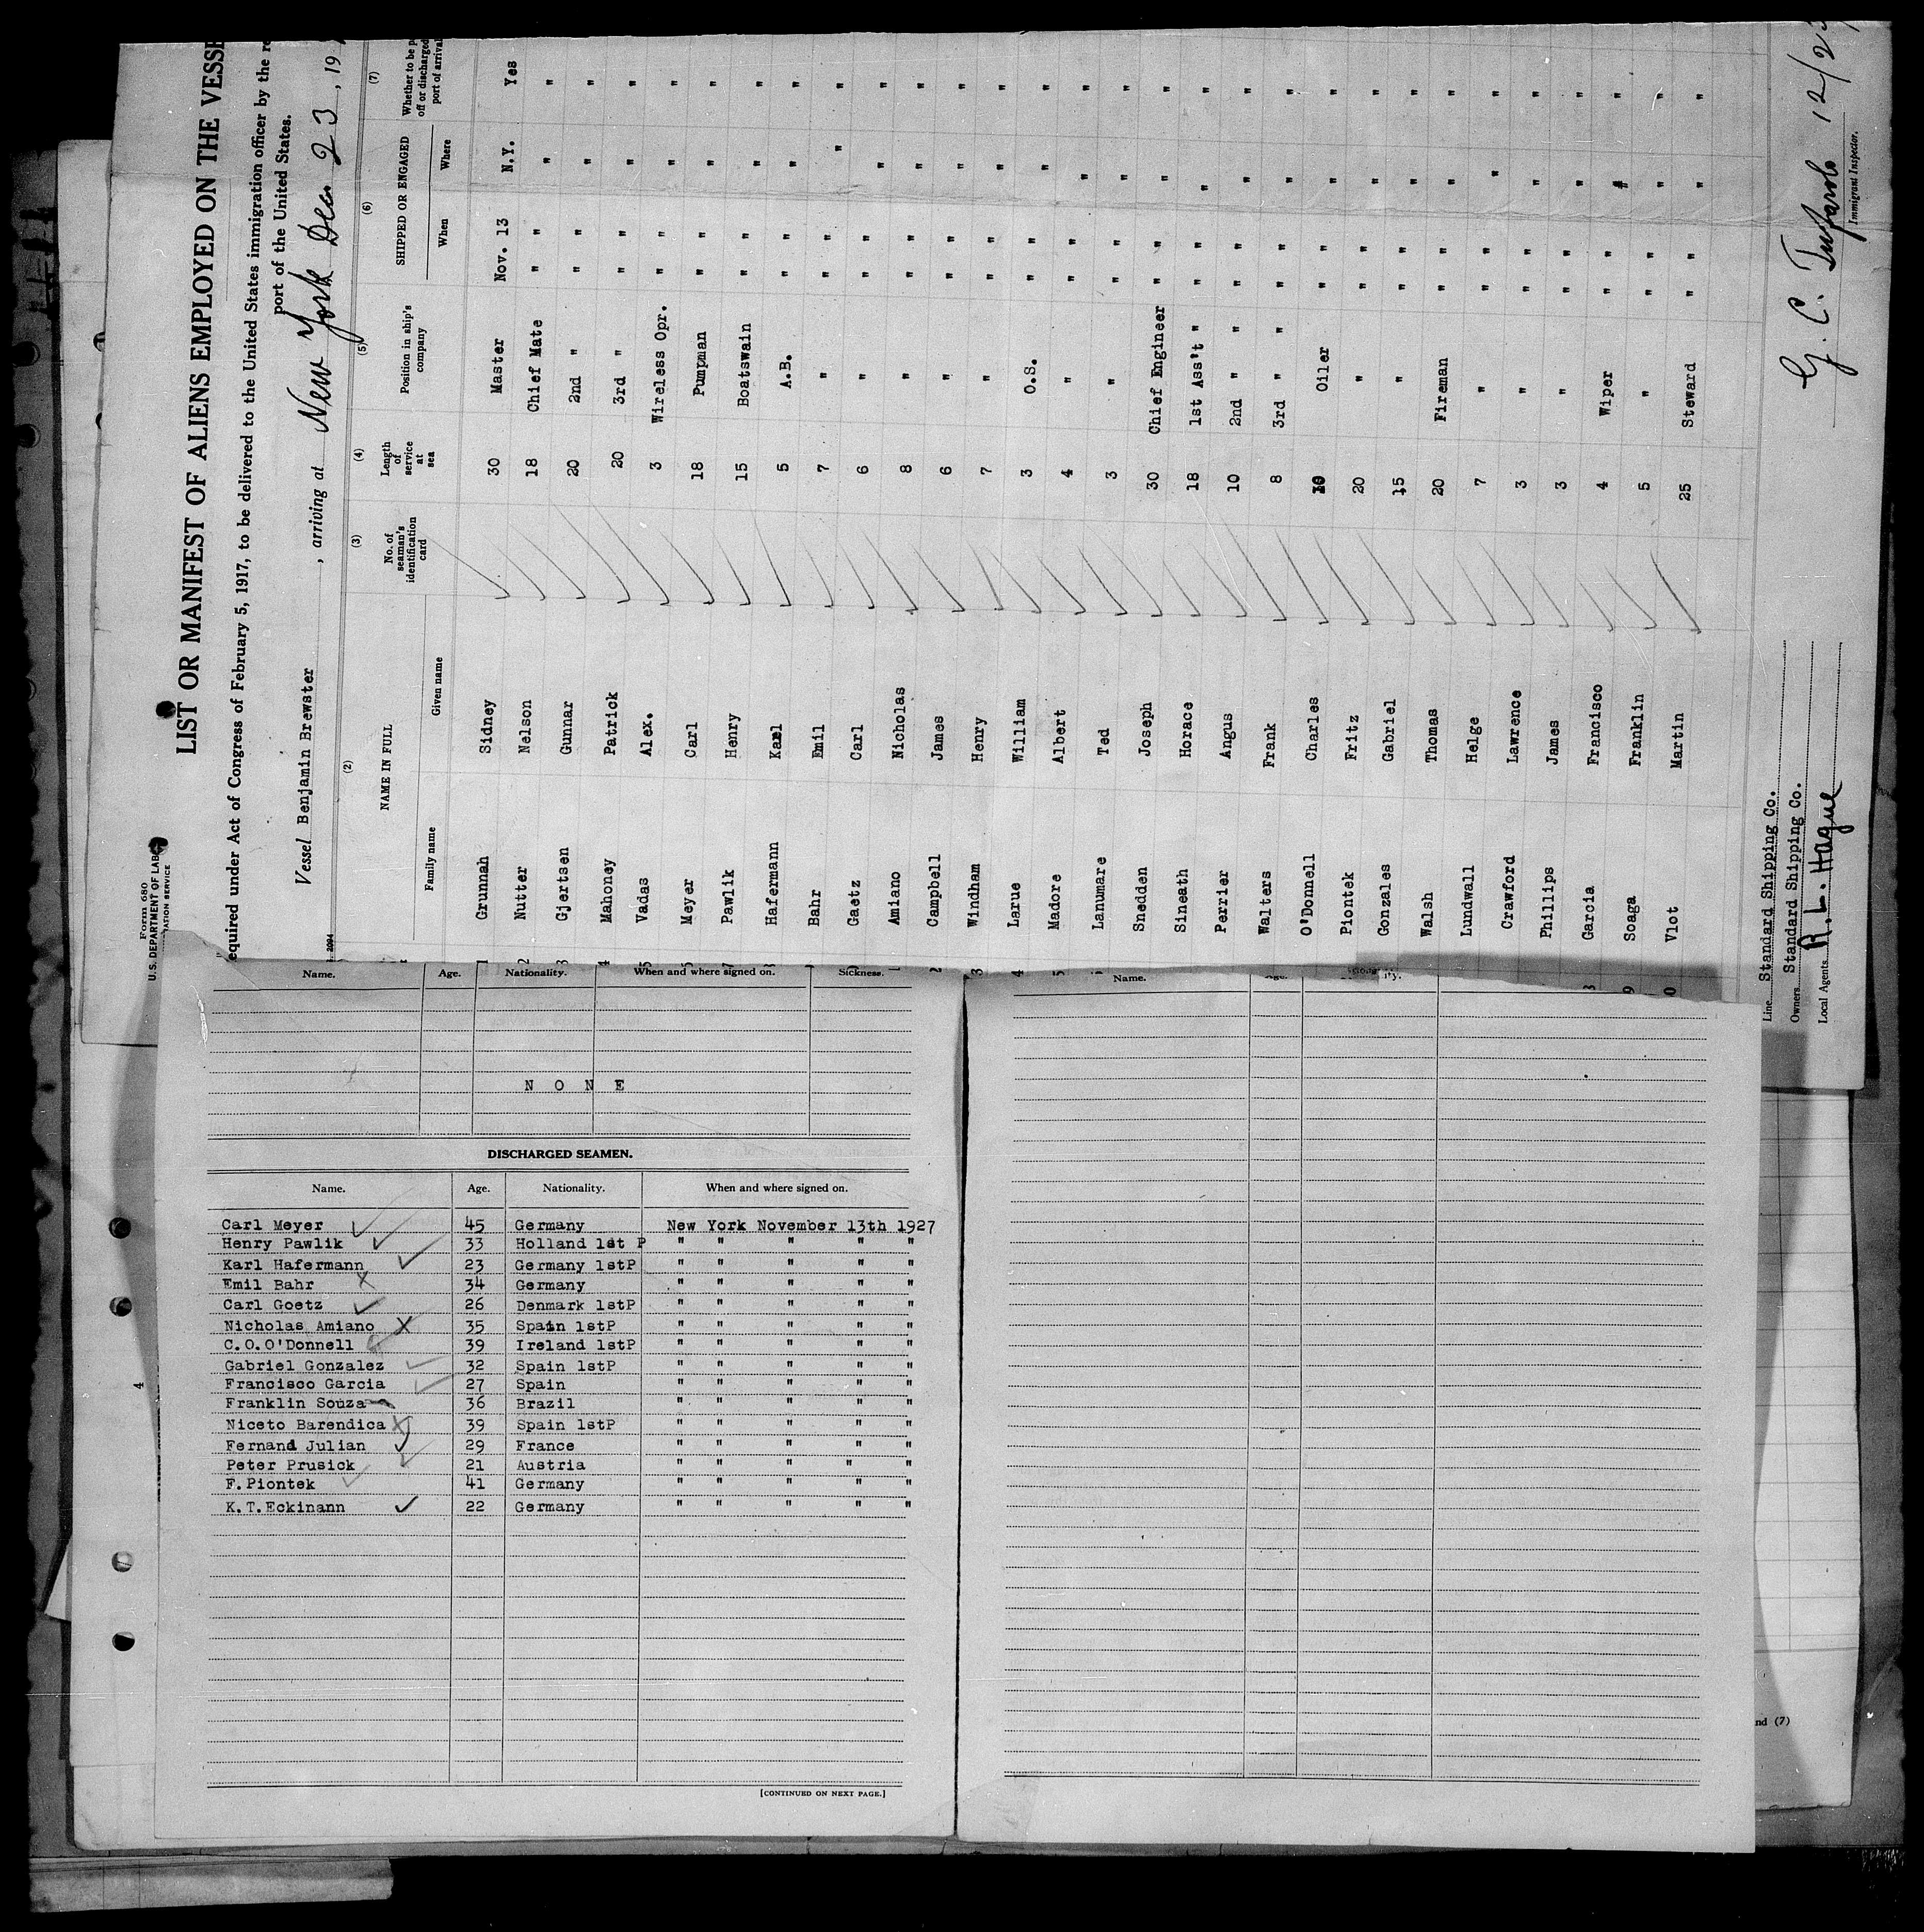 Form 680
U.S. DEPARTMENT OF LAB
ATION SERVICE
LIST OR MANIFEST OF ALIENS EMPLOYED ON THE VESSE
equired under Act of Congress of February 5, 1917, to be delivered to the United States immigration officer by the re
port of the United States.
Vessel Benjamin Brewster, arriving at New York Dec. 23, 19
(2) (3) (4) (5) (6) (7)
NAME IN FULL No. of seaman's identification card Length of service at sea Position in ship's company SHIPPED OR ENGAGED Whether to be p off or discharged port of arrival
Family name Given name When Where
1 Grunnah Sidney 30 Master Nov. 13 N.Y. Yes
2 Nutter Nelson 18 Chief Mate " " " "
3 Gjertsen Gunnar 20 2nd " " " " "
4 Mahoney Patrick 20 3rd " " " " "
5 Vadas Alex. 3 Wireless Opr. " " " "
Meyer Carl 18 Pumpman " " " "
7 Pawlik Henry 15 Boatswain " " " "
Hafermann Karl 5 A.B. " " " "
Bahr Emil 7 " " " " "
Gaetz Carl 6 " " " " "
1 Amiano Nicholas 8 " " " " "
2 Campbell James 6 " " " " "
3 Windham Henry 7 " " " " "
4 Larue William 3 O.S. " " " "
5 Madore Albert 4 " " " " "
Lanumare Ted 3 " " " " "
Snedden Joseph 30 Chief Engineer " " " "
Sineath Horace 18 1st Ass't " " " " "
Perrier Angus 10 2nd " " " " " "
Walters Frank 8 3rd " " " " " "
O'Donnell Charles Oiler " " " "
Piontek Fritz 20 " " " " "
Gonzales Gabriel 15 " " " " "
Walsh Thomas 20 Fireman " " " "
Lundwall Helge 7 " " " " "
Crawford Lawrence 3 " " " " "
Phillips James 3 " " " " "
8 Garcia Francisco 4 Wiper " " " "
9 Soaga Franklin 5 " " " " "
0 Vlot Martin 25 Steward " " " "
Line Standard Shipping Co.
Owners Standard Shipping Co.
Local Agents R. L. Hague
G. C. 12/23
Immigrant Inspector.
Name. Age. Nationality. When and where signed on. Sickness.
N O N E
DISCHARGED SEAMEN.
Name. Age. Nationality. When and where signed on.
Carl Meyer 45 Germany New York November 13th 1927
Henry Pawlik 33 Holland 1st P " " " " "
Karl Hafermann 23 Germany 1stP " " " " "
Emil Bahr 34 Germany " " " " "
Carl Goetz 26 Denmark 1stP " " " " "
Nicholas Amiano 35 Spain 1stP " " " " "
C.O.O'Donnell 39 Ireland 1stP " " " " "
Gabriel Gonzalez 32 Spain 1stP " " " " "
Francisco Garcia 27 Spain " " " " "
Franklin Souza 36 Brazil " " " " "
Niceto Barendica 39 Spain 1stP " " " " "
Fernand Julian 29 France " " " " "
Peter Prusick 21 Austria " " " " "
F.Piontek 41 Germany " " " " "
K.T.Eckinann 22 Germany " " " " "
[CONTINUED ON NEXT PAGE.]
Name.
4
nd (7)